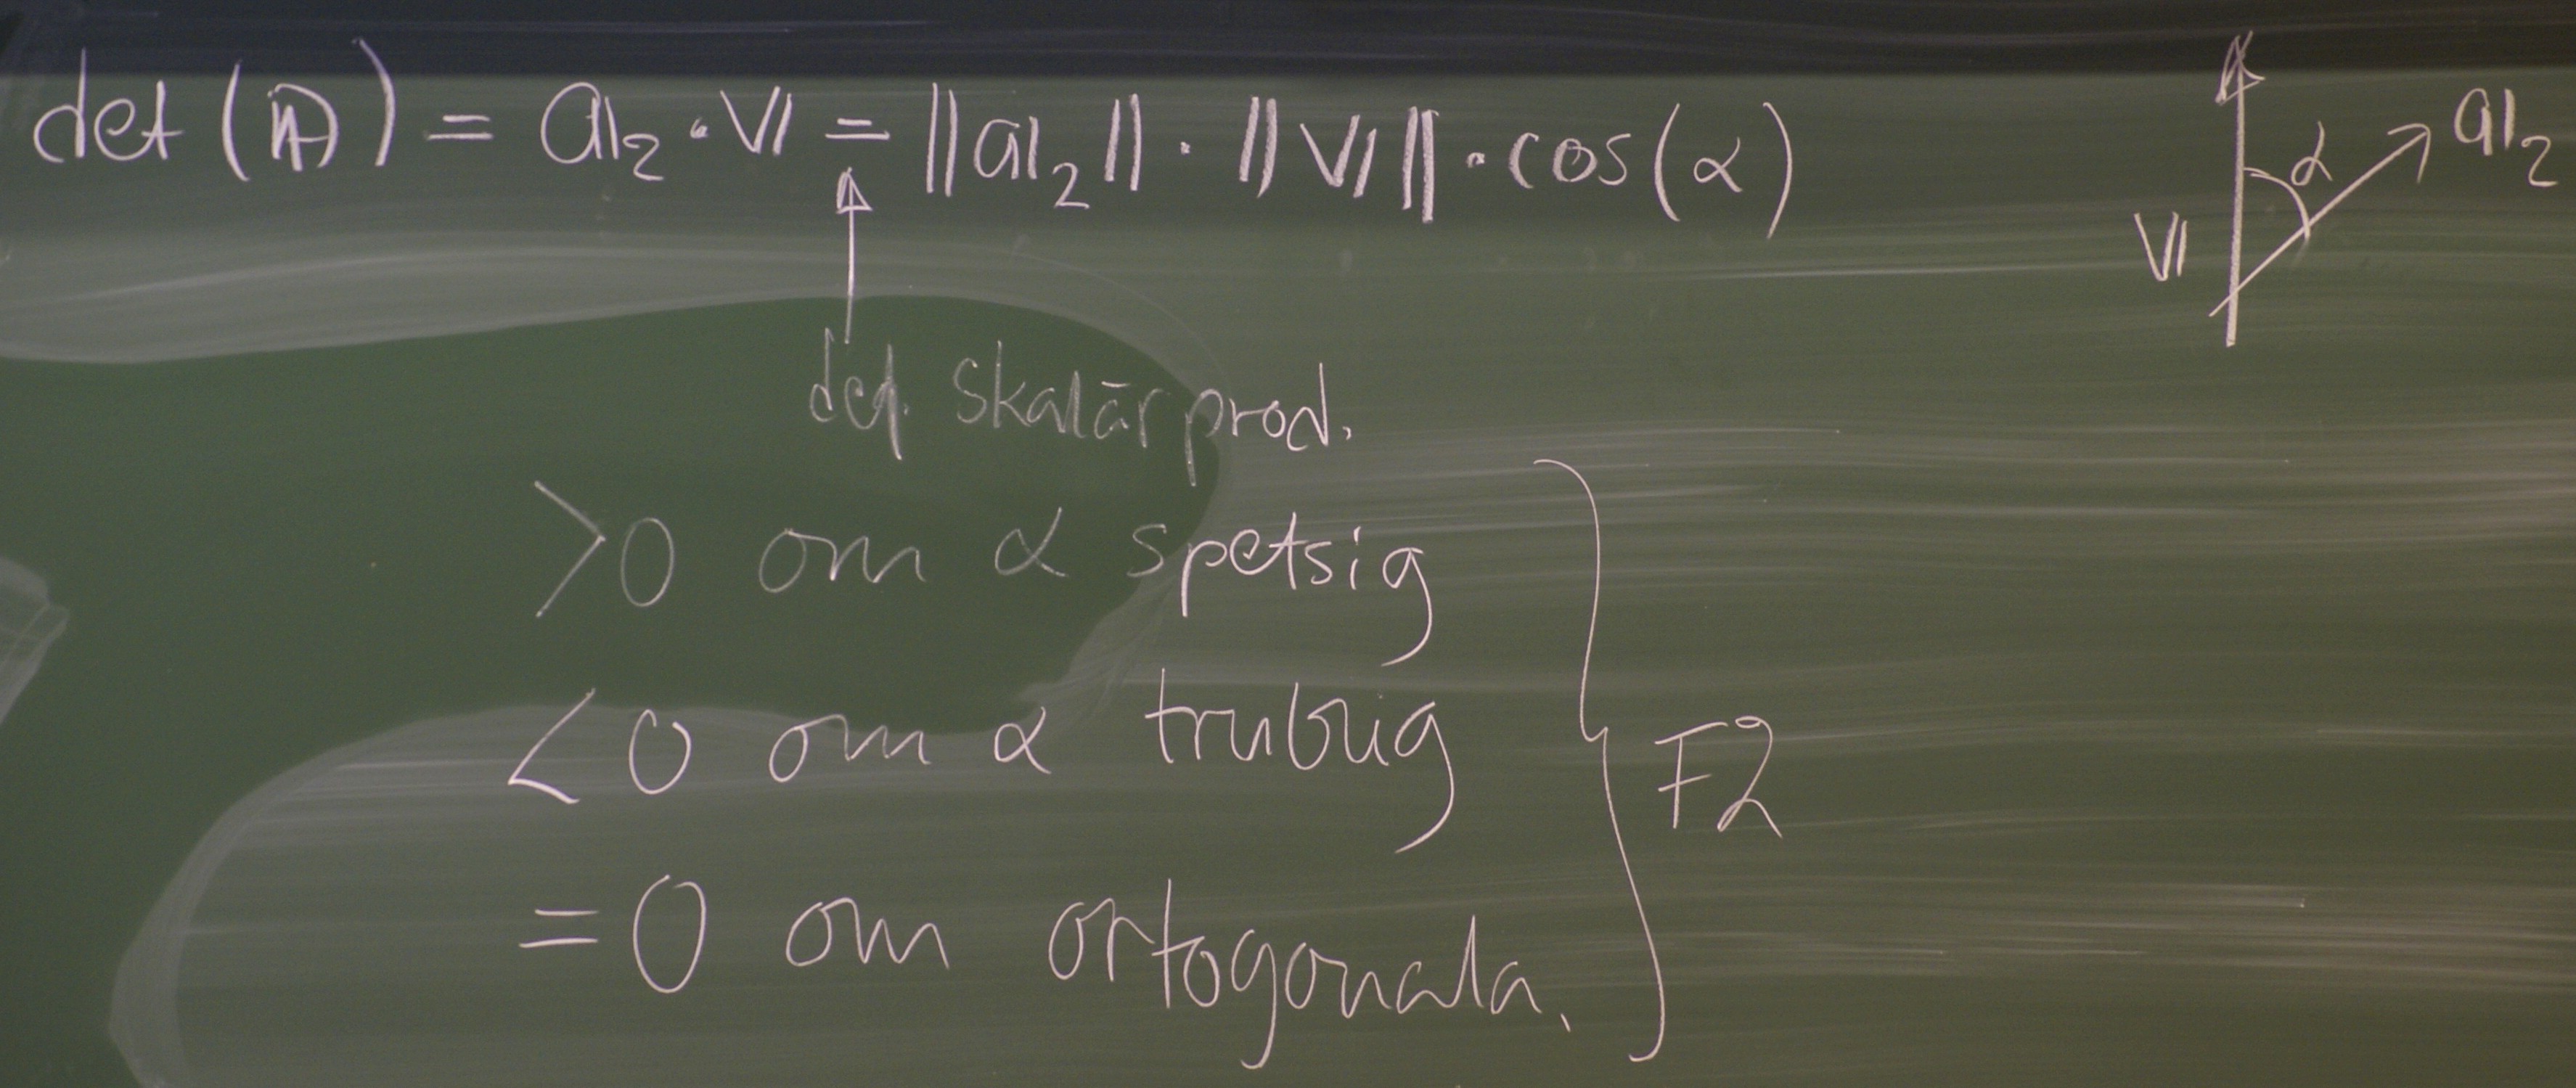 det(A) = a₂ · v = ||a₂|| · ||v|| · cos(α)
def. skalärprod.
>0 om α spetsig
<0 om α trubbig
=0 om ortogonala.
F2
v
α
a₂